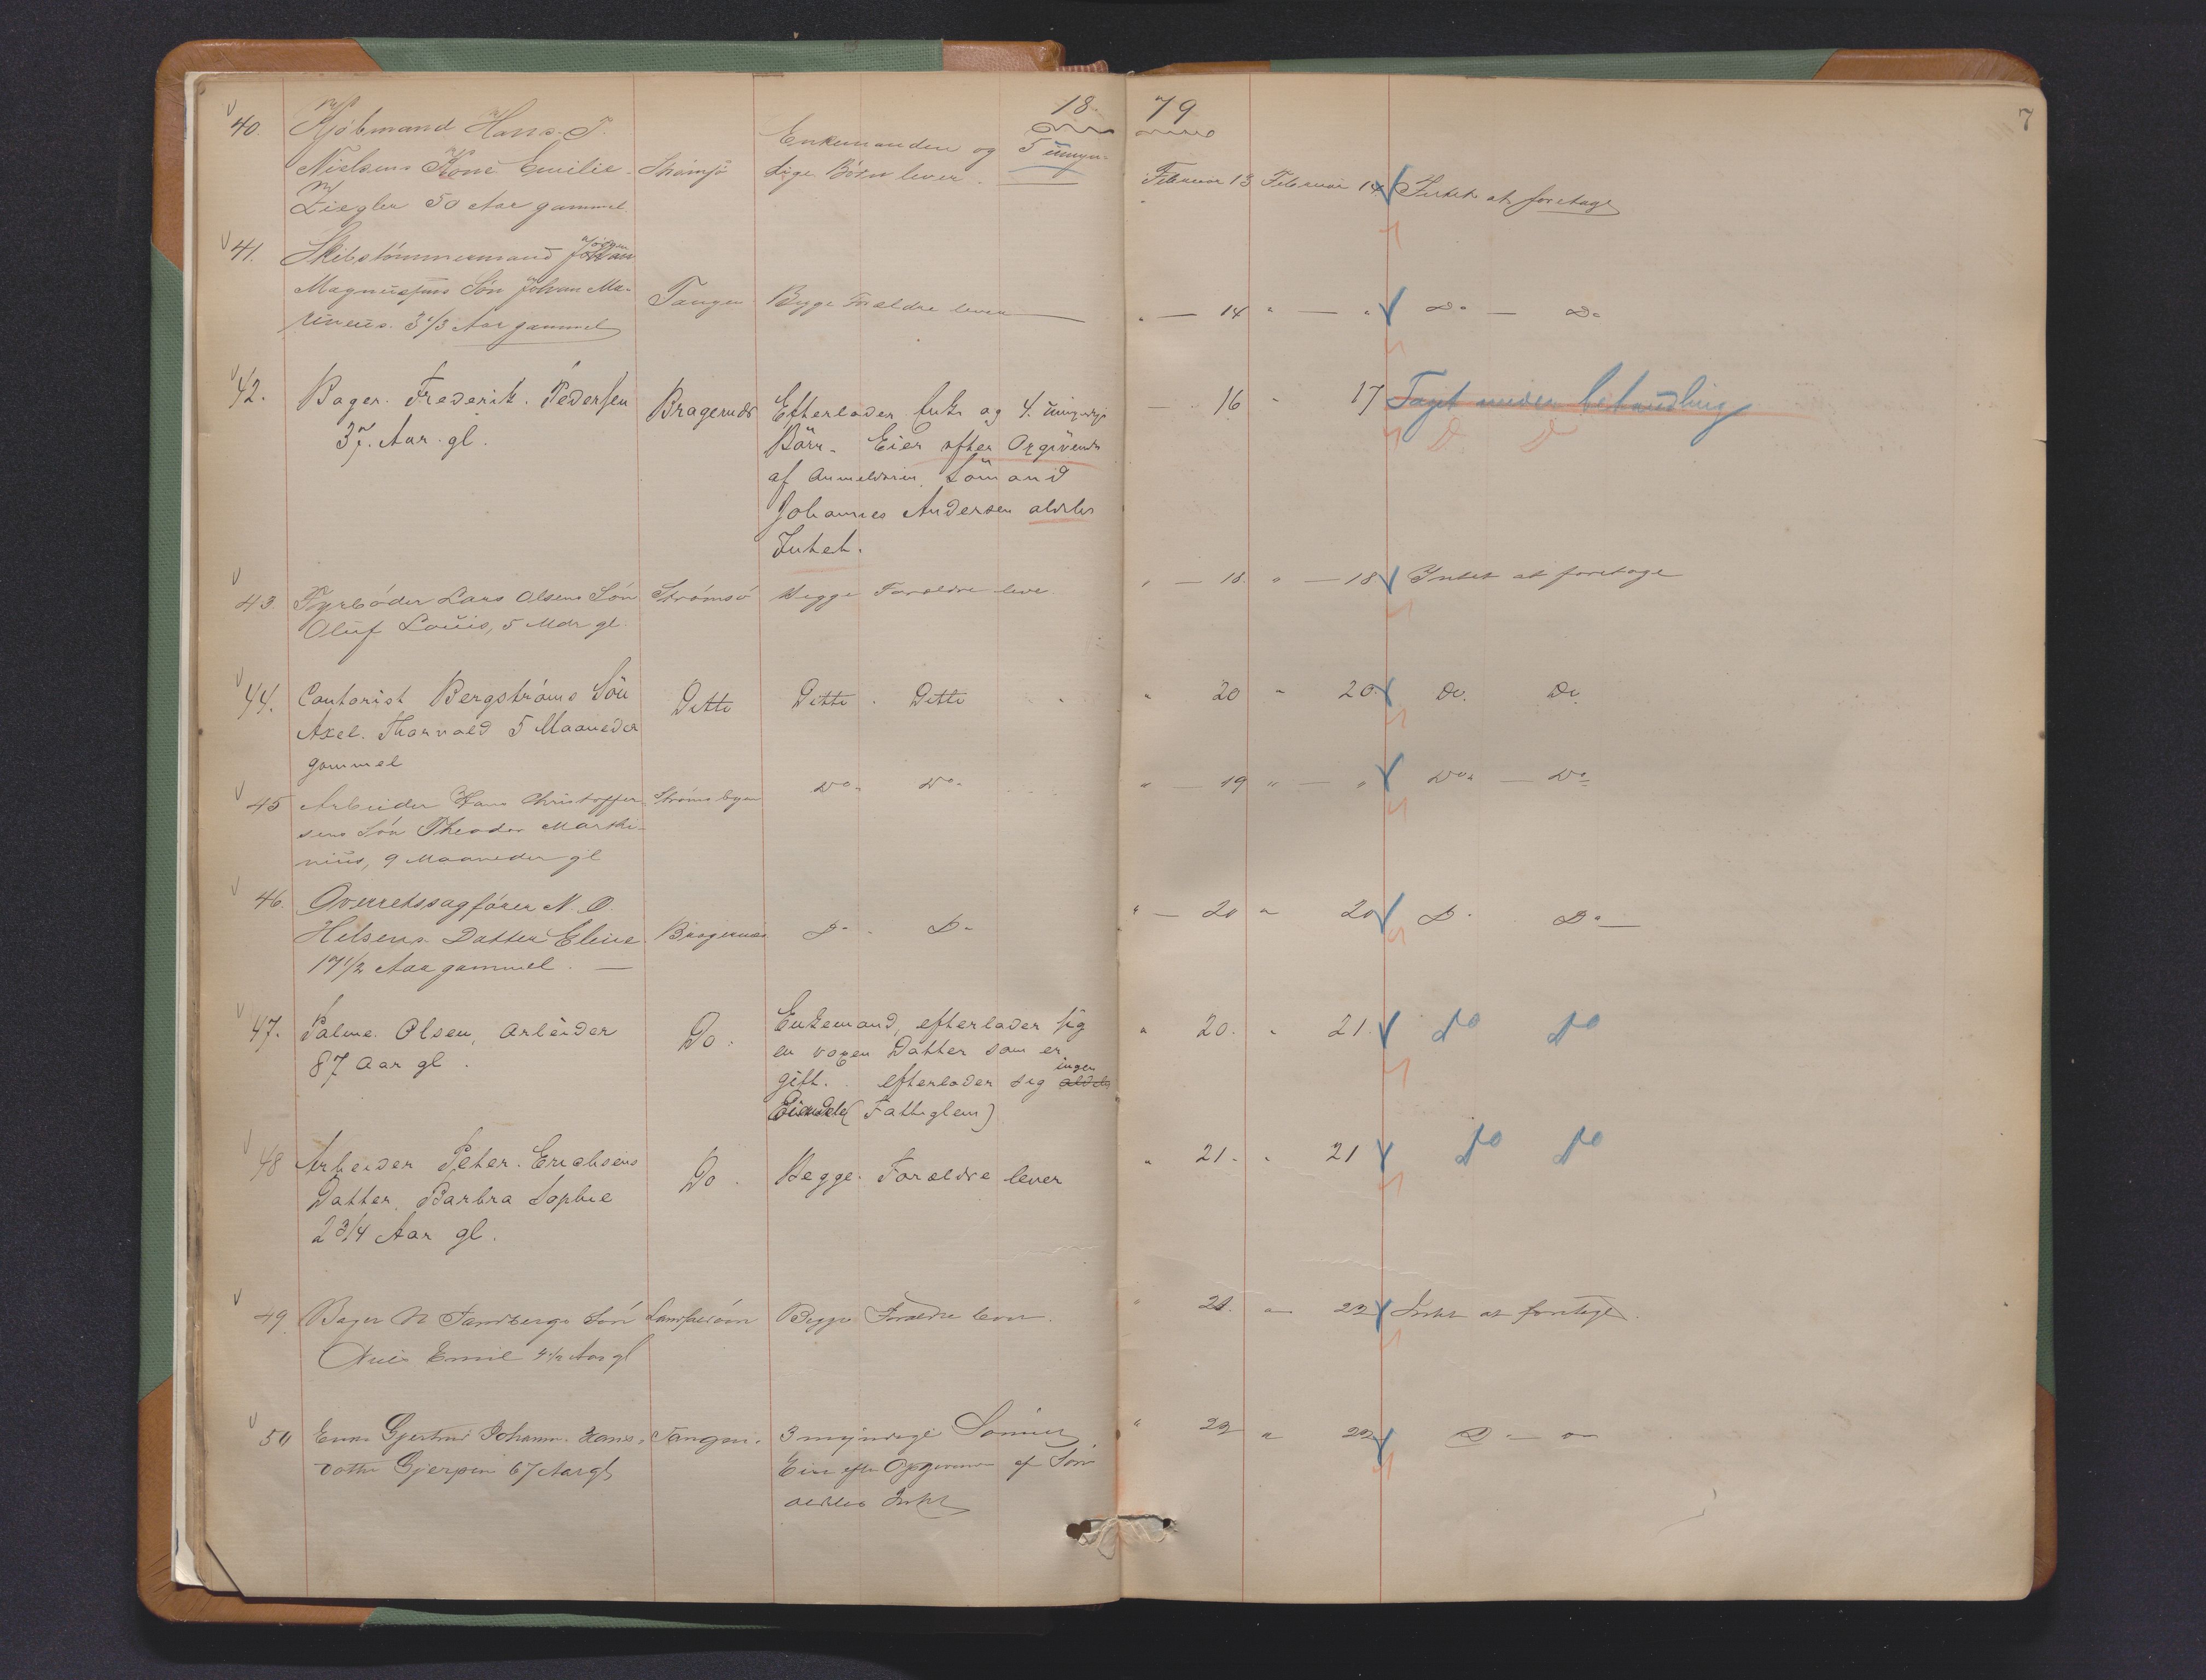 1879
7
40. Kjøbmand Hans T. Enkemanden og 5 umyn-
Nielsens Kone Emilie Strømsø dige Børn lever. Februar 13 Februar 14 Intet at foretage
Ziegler 50 Aar gammel
41. Skibstømmermand Jörgen
Magnusens Sön Johan Ma- Tangen Begge Forældre lever " — 14 " — " Do — Do
rinius. 3 1/3 Aar gammel
42. Bager Frederik Pedersen Bragernæs Efterlader Enke og 4 umyndige — 16 " 17 Taget under behandling
37 Aar gl. Börn. Eier efter Opgivende Do Do
af Anmelderen Sömand
Johannes Andersen aldeles
Intet.
43 Fyrböder Lars Olsens Sön Strømsø Begge Forældre leve " — 18. " — 18 Intet at foretage
Oluf Louis, 5 Mdr gl.
44. Contorist Bergströms Sön Ditto Ditto Ditto " 20 " 20 Do. Do.
Axel Thorvald 5 Maaneder
gammel
45 Arbeider Hans Christoffer- Strömsbyen Do. Do. " — 19 " — " Do. — Do
sens Sön Theodor Marthi-
nius, 9 Maaneder gl
46. Overretssagförer N. O.
Helsens Datter Eline Bragernæs Do. Do. " — 20 " 20 Do. Do. —
17 1/2 Aar gammel. —
47. Palme Olsen, Arbeider Do. Enkemand, efterlader sig " 20. " 21. Do Do
87 Aar gl. en voxen Datter som er
gift. efterlader sig aldeles ingen
Eiendele (Fattiglem)
48 Arbeider Peter Erichsens Do. Begge Forældre lever " 21. " 21 Do Do
Datter Barbra Sophie
2 3/4 Aar gl.
49. Bager N Sandbergs Sön Begge Forældre lever. " 21. " 22 Intet at foretage.
Nils Emil 4 1/2 Aar gl
50 Enke Gjertrud Johanne Hans- Tangen. 3 myndige Sönner " 22 " 22 Do — "
datter Gjerpen 67 Aar gl. Eier efter Opgivende af Sön
aldeles Intet